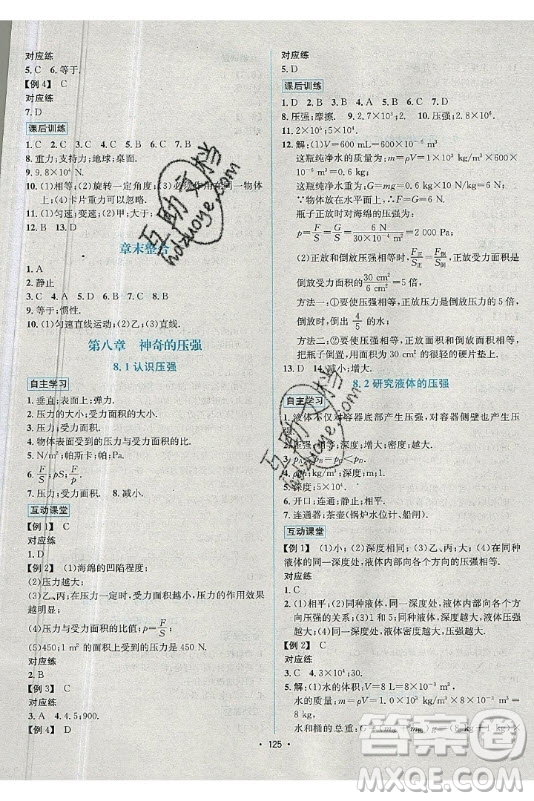 对应练
5. C　6. 等于.
【例 4】　C
对应练
7. D
课后训练
1. C　2. C　3. C　4. B　5. C　6. C　7. B
8. 重力;支持力;地球;桌面.
9. 9.8×10⁴ N.
10. (1)相等;(2)旋转一定角度;(3)必须作用在同一物体
上;(4)卡片重力可以忽略.
11. (1)匀速;变速;(2)甲;大于;
12. B　13. D
章末整合
1. A
2. 静止
3. C　4. C　5. D　6. B　7. C　8. B
9. 等于;惯性.
10. (1)匀速直线运动;(2)丁;(3)直线.
第八章　神奇的压强
8.1 认识压强
自主学习
1. 垂直;表面上;弹力.
2. 压力的大小;受力面积的大小.
3. 压力的作用效果.
4. 物体表面受到的压力与受力面积的比.
5. N;m²;帕斯卡;帕;Pa.
6. F/S;pS;F/p.
7. 压力;受力面积　8. 减小.
互动课堂
【例 1】　B
对应练
1. D
【例 2】　(1)海绵的凹陷程度;
(2)压力越大;
(3)乙、丙;压力;受力面积越小,压力的作用效果
越明显;
(4)压力与受力面积的比值;p=F/S;
(5)450;1 m² 的面积上受到的压力是 450 N.
对应练
2. B
【例 3】　C
对应练
3. A　4. 4.5;900.
【例 4】　D
对应练
5. D
课后训练
1. D　2. B　3. C　4. D　5. D　6. D　7. A
8. 压强;摩擦.　9. 2×10⁴.　10. 压强;
11. 5×10⁴;2.5×10⁴.
12. 解:(1)V=600 mL=600×10⁻⁶ m³
这瓶纯净水的质量为:m=ρV=1×10³ kg/m³×
600×10⁻⁶ m³=0.6 kg
这瓶纯净水的重力为:G=mg=0.6 kg×10 N/kg=6 N
∵物体放在水平面上,∴F=G=6 N
瓶子正放时对海绵的压强为:
p=F/S=G/S=6 N/(30×10⁻⁴ m²)=2 000 Pa;
(2)正放和倒放压强相等时,F正/S正=F倒/S倒,正放受力面积是
倒放受力面积的30 cm²/6 cm²=5 倍,
方法一:①要使压强相等,正放压力是倒放压力的 5
倍,倒放时倒出 4/5 的水即可;
方法二:②实验时可在倒放的矿泉水瓶与海绵间放
一个面积为 30 cm² 的很轻的硬片垫上.
8.2 研究液体的压强
自主学习
1. 液体不仅对容器底部产生压强,对容器侧壁也产生
压强.
2. 相等;深度;增大;越大.
4. 减小.
6. 开口;连通;静止;相平.
7. 连通器;茶壶(锅炉水位计、船闸).
互动课堂
【例 1】　(1)小;(2)深度相同;(3)乙、丙;(4)在同种
液体的同一深度处,液体向各个方向的压强相等.
对应练
1. (1)相平;(2)同种液体,同一深度处,液体向各个方
向压强的关系;(3)同种液体,深度越大,液体压强越
大;(4)同一深度处,液体密度越大,液体压强越大.
【例 2】　C
对应练
3. C　4. 3×10⁴;30.
5. 解:(1)水的体积:V=8 L=8×10⁻³ m³
水的质量:m=ρV=1.0×10³ kg/m³×8×10⁻³ m³
=8 kg
水和桶的总重:
125